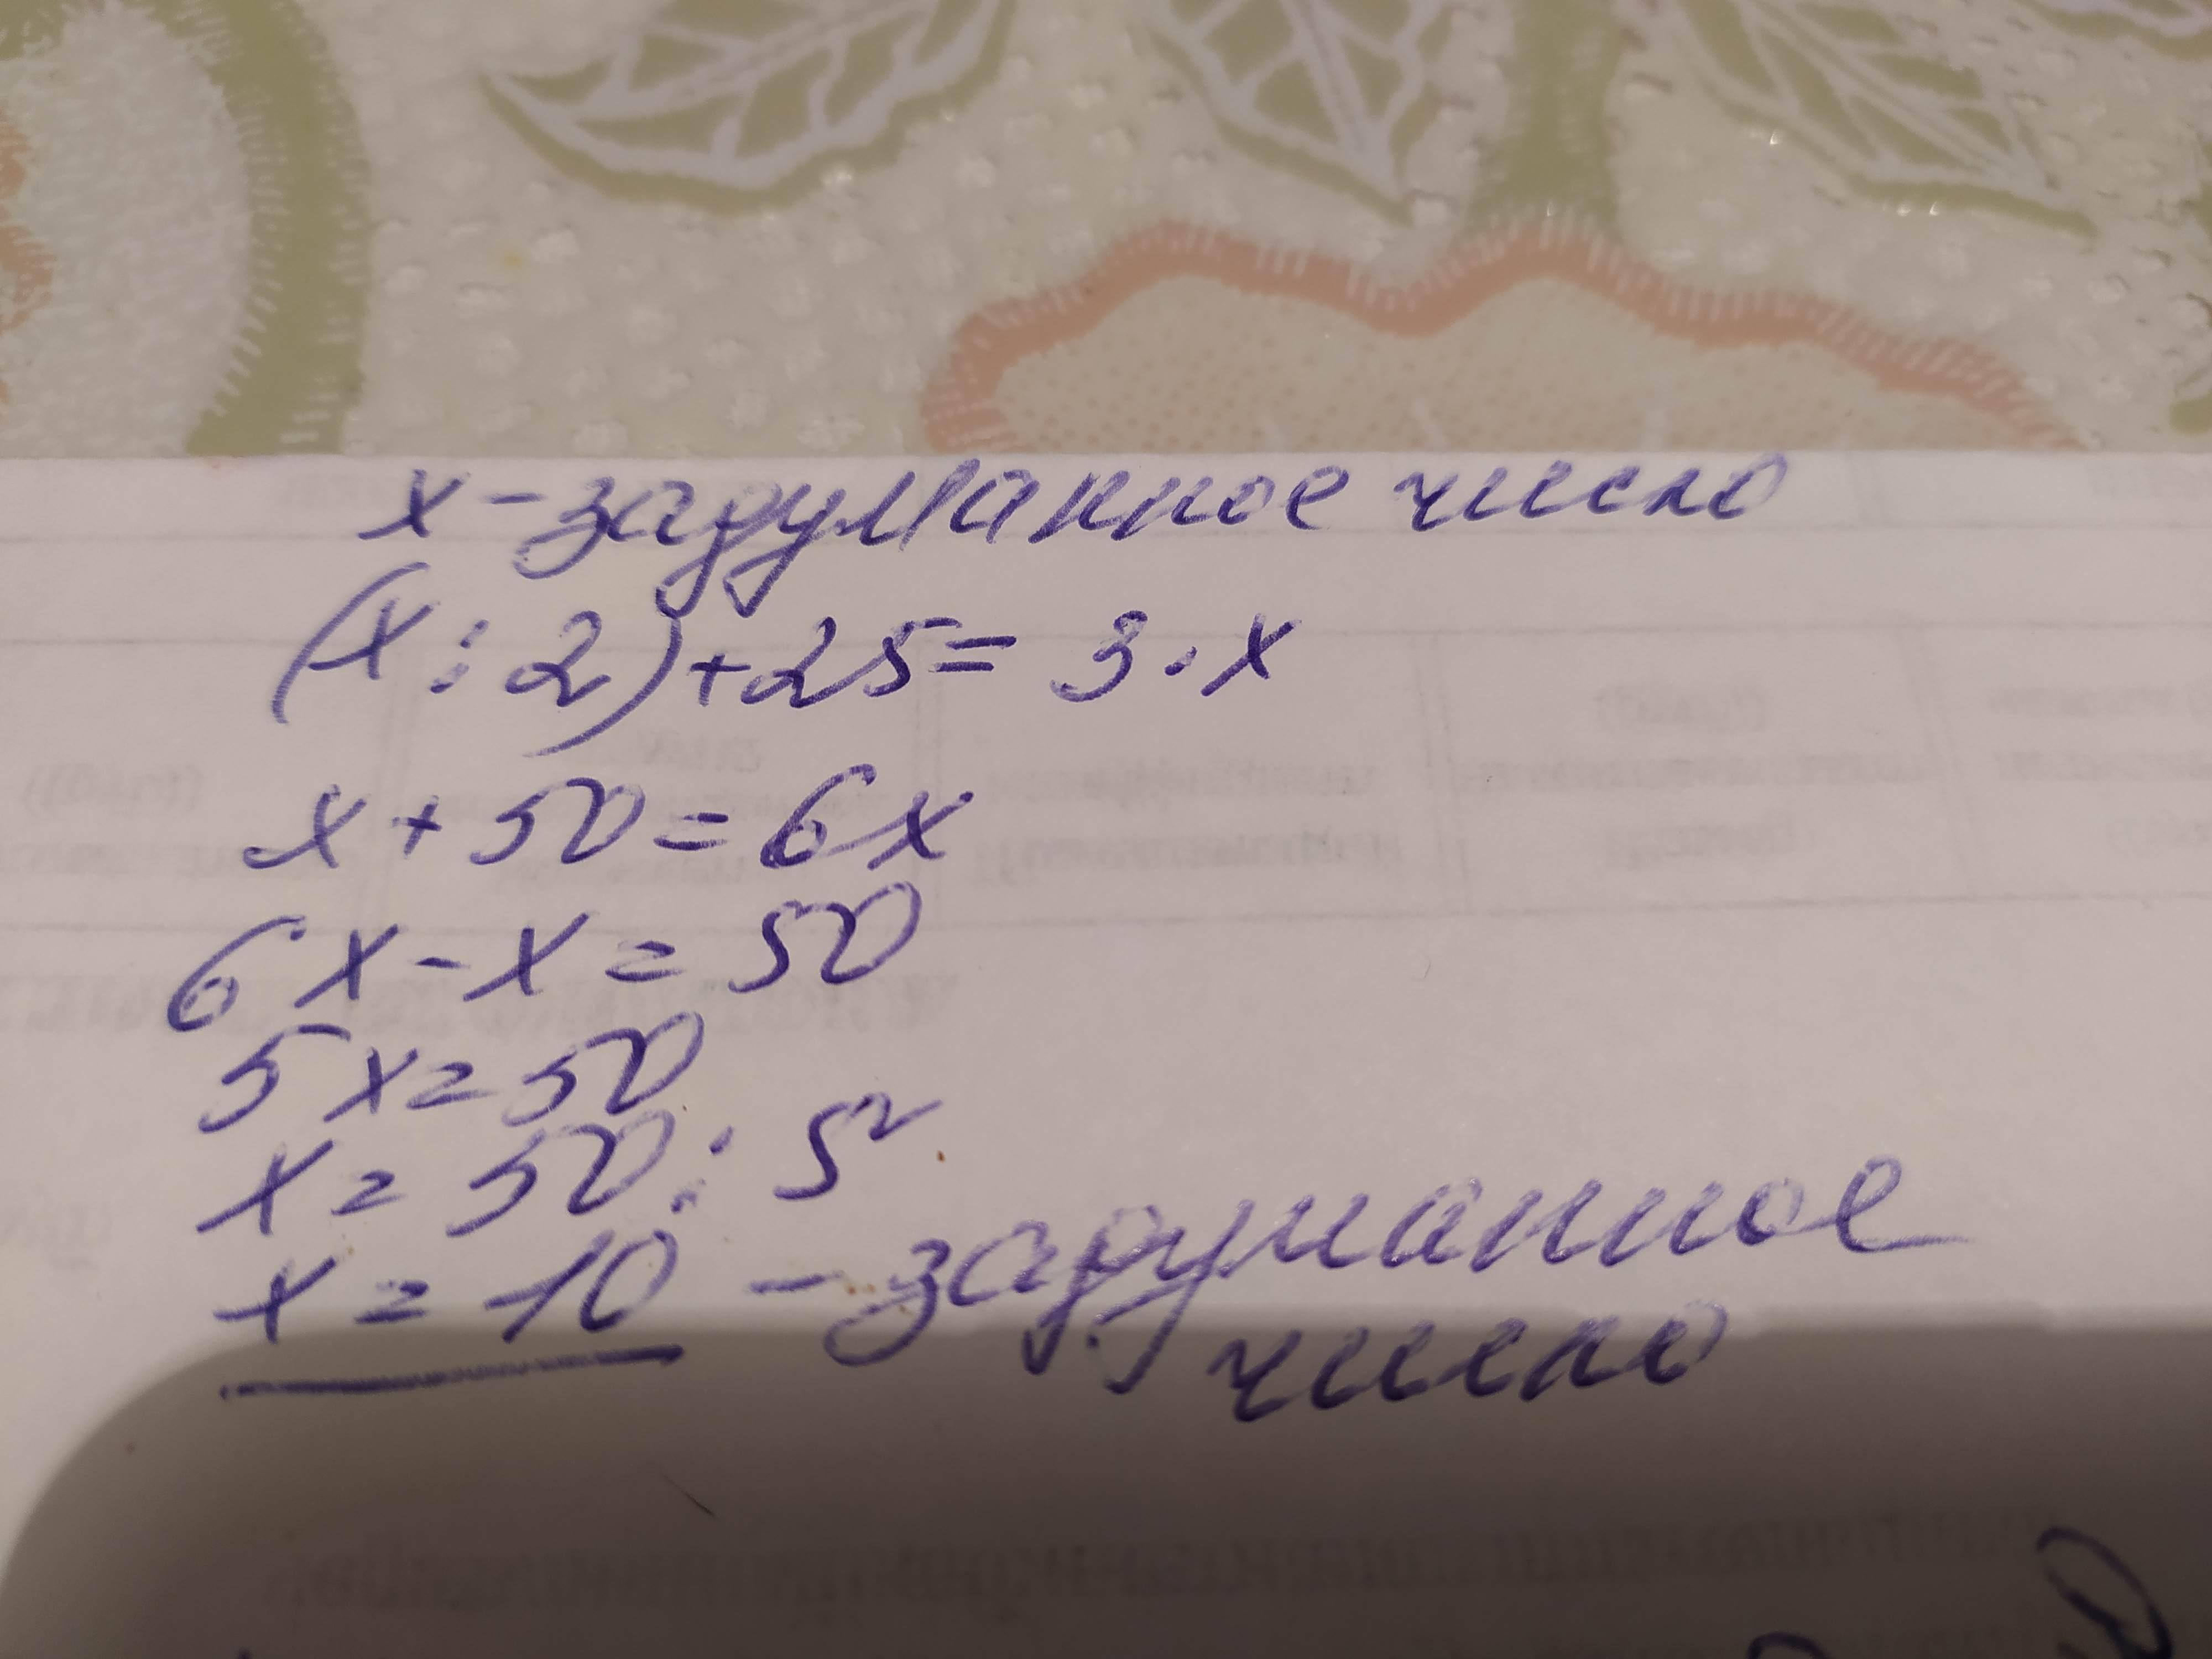 x - задуманное число
(x : 2) + 25 = 3 · x
x + 50 = 6x
6x - x = 50
5x = 50
x = 50 : 5
x = 10 - задуманное
число